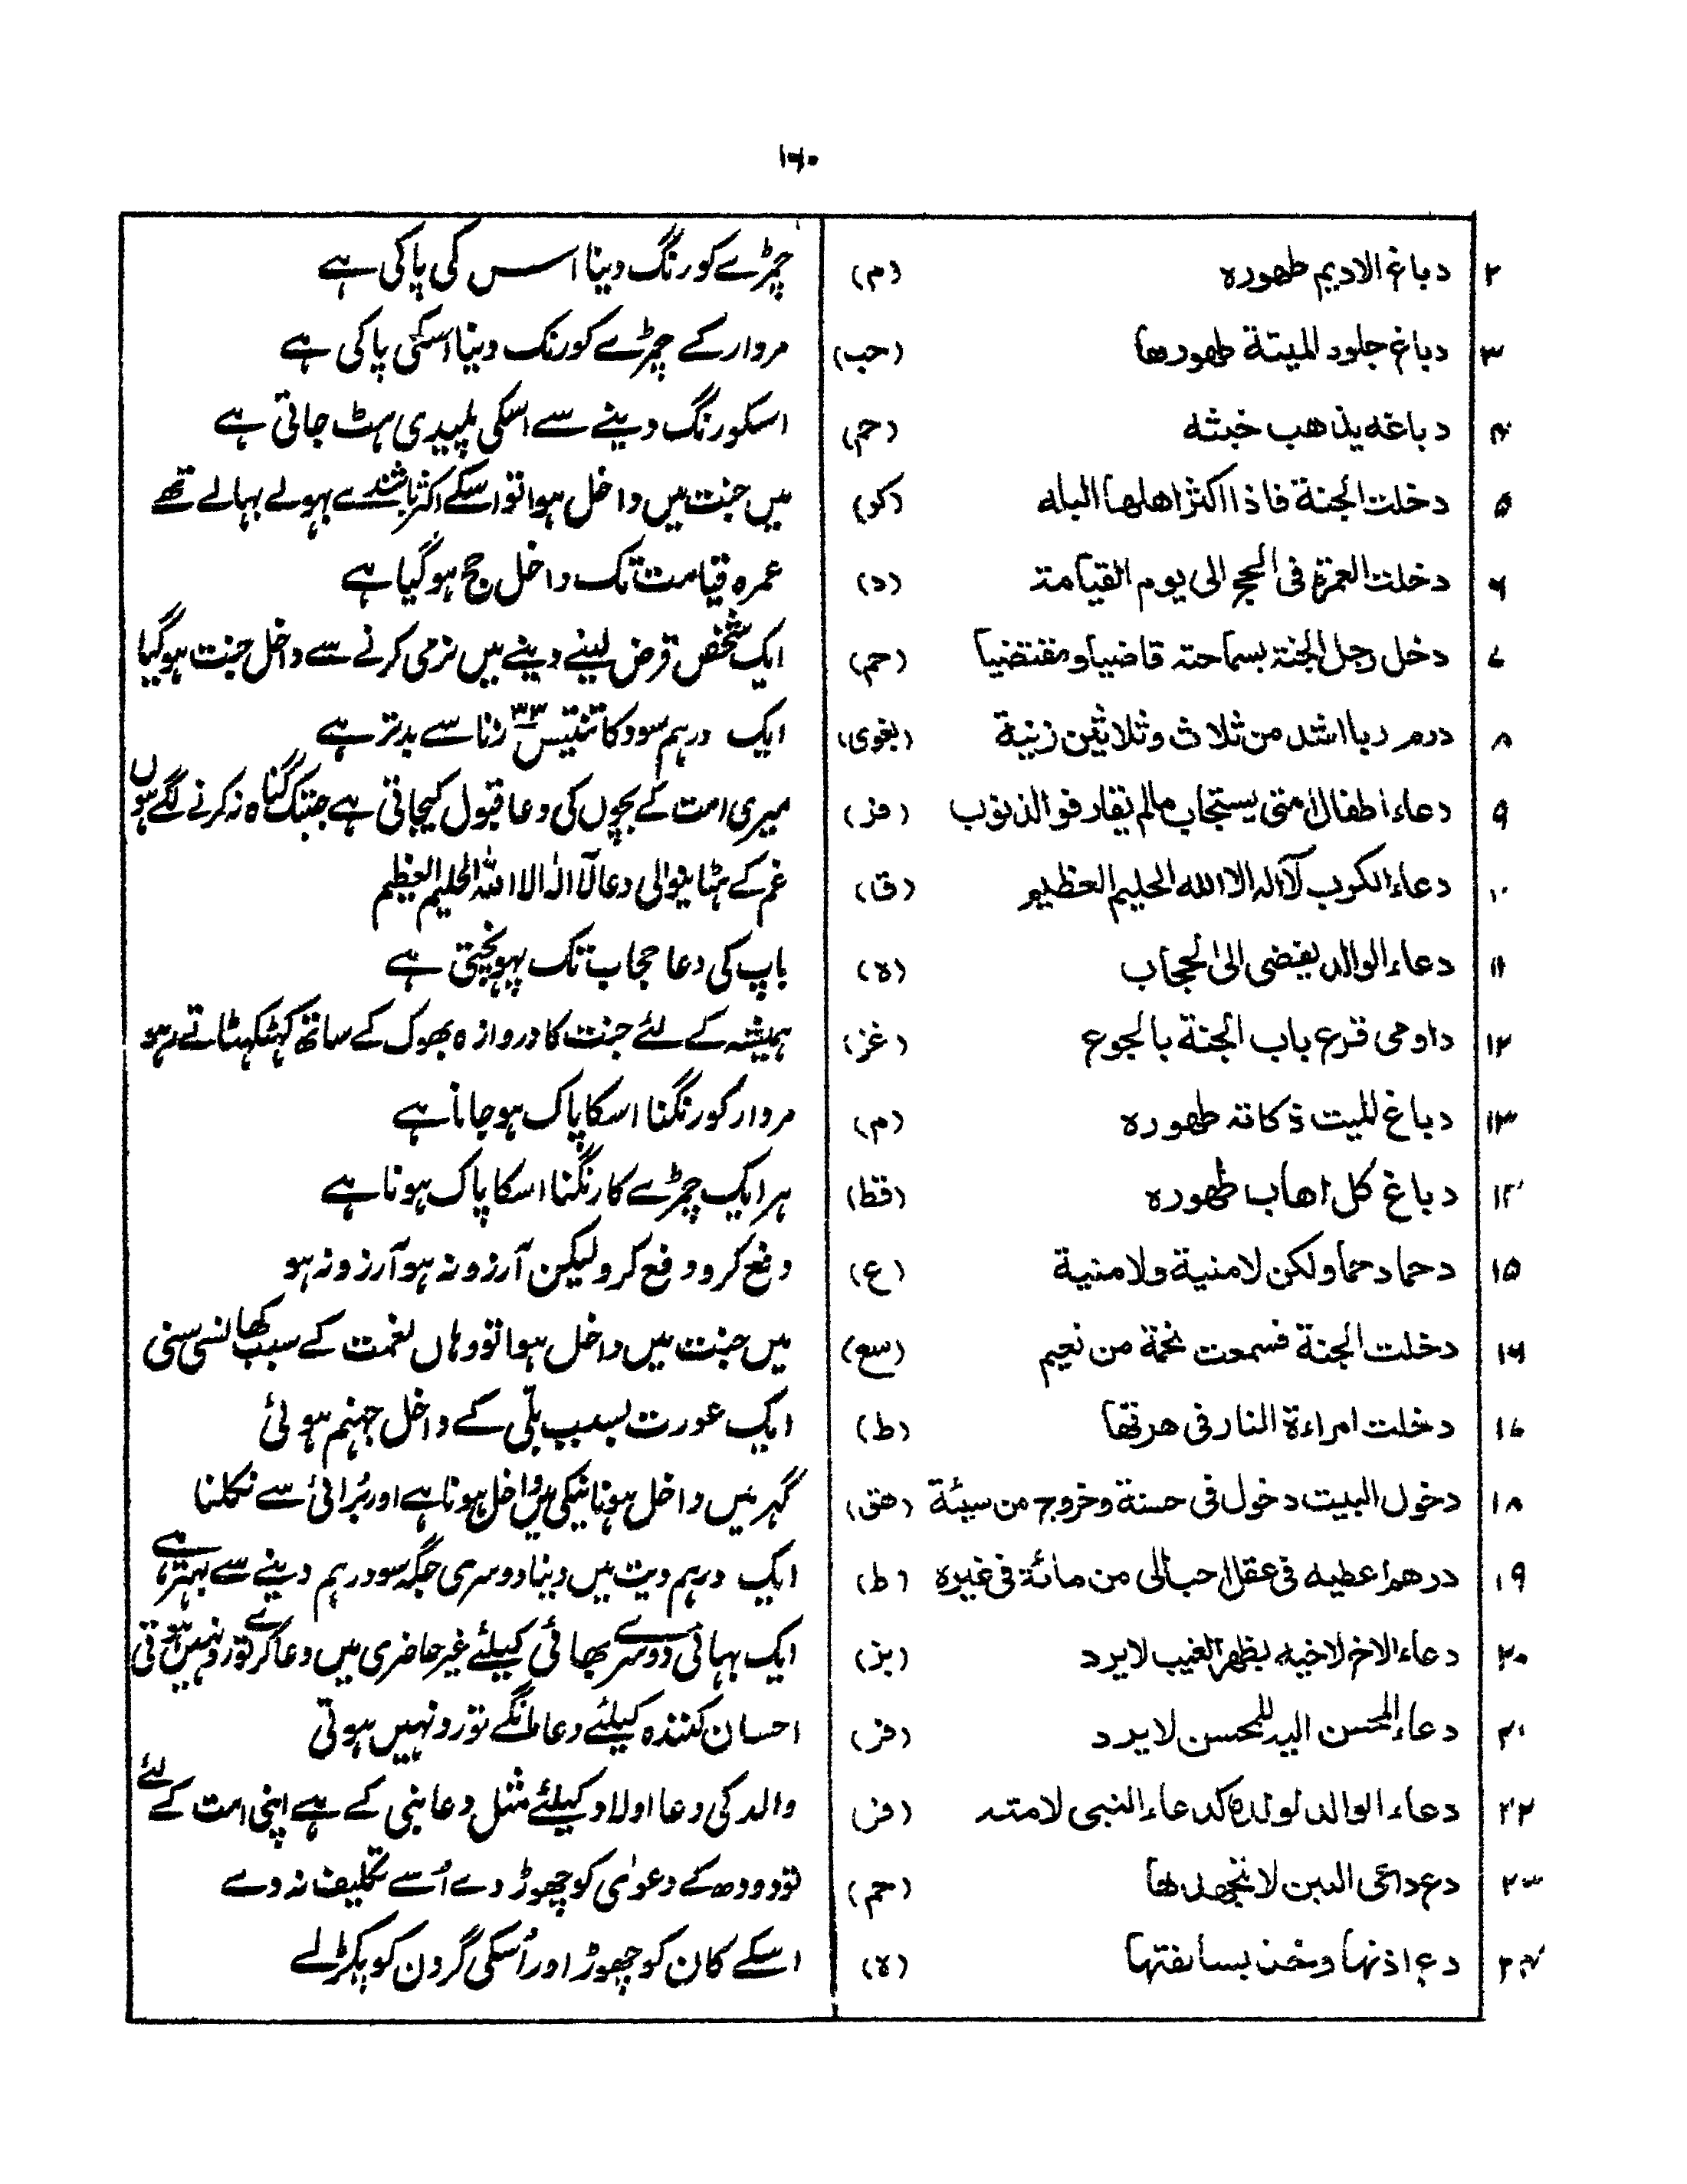 ۱۶۰
۲ دباغ الادیم طهوره (م) چمڑے کو رنگ دینا اس کی پاکی ہے
۳ دباغ جلود المیتة طهورها (حب) مردار کے چمڑے کو رنگ دینا اسکی پاکی ہے
۴ دباغه یذهب خبثه (حم) اسکو رنگ دینے سے اسکی پلیدی ہٹ جاتی ہے
۵ دخلت الجنة فاذا اکثر اهلها البله (کو) میں جنت میں داخل ہوا تو اسکے اکثر باشندے بہولے بہالے تھے
۶ دخلت العمرة فی الحج الی یوم القیامة (د) عمرہ قیامت تک داخل حج ہوگیا ہے
۷ دخل رجل الجنة بسماحته قاضیا و مقتضیا (حم) ایک شخص قرض لینے دینے میں نرمی کرنے سے داخل جنت ہوگیا
۸ درم ربا اشد من ثلاث و ثلاثین زنیة (بغوی) ایک درہم سود کا تنتیس ۳۳ زنا سے بدتر ہے
۹ دعاء اطفال امتی یستجاب مالم یقارفوا الذنوب (فز) میری امت کے بچوں کی دعا قبول کیجاتی ہے جبتک گناہ نہ کرنے لگے ہوں
۱۰ دعاء الکرب لآ اله الا الله الحلیم العظیم (قا) غم کے ہٹانیوالی دعا لآ الہ الا اللہ الحلیم العظیم
۱۱ دعاء الوالد یفضی الی الحجاب (ه) باپ کی دعا حجاب تک پہونچتی ہے
۱۲ داومی قرع باب الجنة بالجوع (غز) ہمیشہ کے لئے جنت کا دروازہ بھوک کے ساتھ کہٹکہٹاتے رہو
۱۳ دباغ المیت ذکاته طهوره (م) مردار کو رنگنا اسکا پاک ہو جانا ہے
۱۴ دباغ کل اهاب طهوره (قط) ہر ایک چمڑے کا رنگنا اسکا پاک ہونا ہے
۱۵ دحما دحما ولکن لا منیة ولا منیة (ع) دفع کرو دفع کرو لیکن آرزو نہ ہو آرزو نہ ہو
۱۶ دخلت الجنة فسمعت نحمة من نعیم (سع) میں جنت میں داخل ہوا تو وہاں نعمت کے سبب کھانسی سنی
۱۷ دخلت امراءة النار فی هرتها (ط) ایک عورت بسبب بلّی کے داخل جہنم ہوئی
۱۸ دخول البیت دخول فی حسنة و خروج من سیئة (هق) گہر میں داخل ہونا نیکی میں داخل ہونا ہے اور بُرائی سے نکلنا
۱۹ درهم اعطیه فی عقل احب الی من مائة فی غیره (ط) ایک درہم دیت میں دینا دوسری جگہ سو درہم دینے سے بہتر ہے
۲۰ دعاء الاخ لاخیه بظهر الغیب لا یرد (بز) ایک بہائی دوسرے بھائی کیلئے غیر حاضری میں دعا کرے تو رد نہیں ہوتی
۲۱ دعاء المحسن الیه للمحسن لا یرد (فز) احسان کنندہ کیلئے دعا مانگے تو رد نہیں ہوتی
۲۲ دعاء الوالد لولده کدعاء النبی لامته (فز) والد کی دعا اولاد کیلئے مثل دعا نبی کے ہے اپنی امت کے لئے
۲۳ دع داعی اللبن لا تجهدها (حم) تو دودھ کے دعوٰی کو چھوڑ دے اُسے تکلیف نہ دے
۲۴ دع اذنها وخذ بسالفتها (ه) اسکے کان کو چھوڑ اور اُسکی گردن کو پکڑ لے